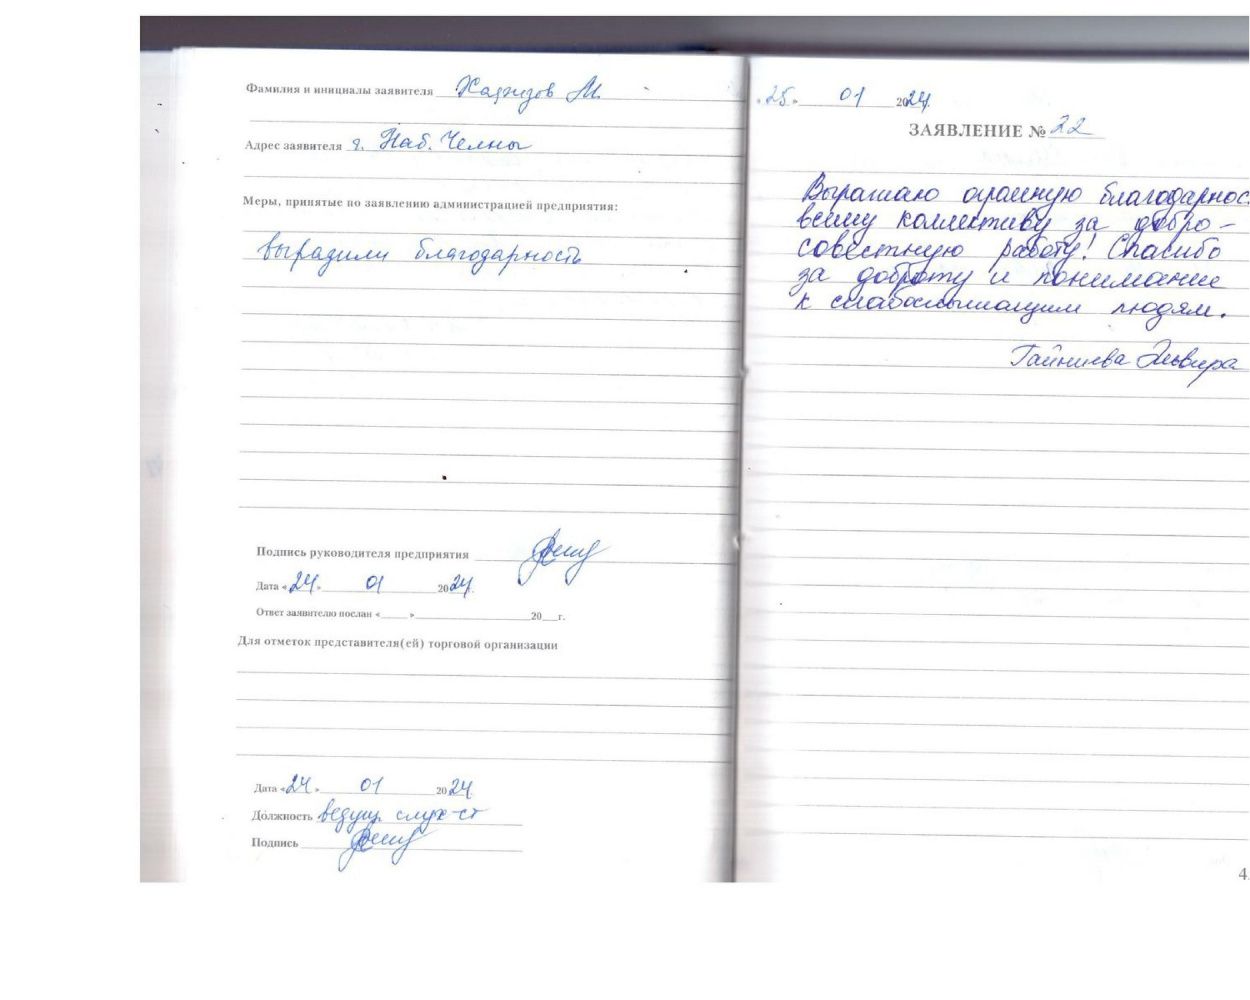 Фамилия и инициалы заявителя Хафизов М.
Адрес заявителя г. Наб. Челны
Меры, принятые по заявлению администрацией предприятия:
выразили благодарность
Подпись руководителя предприятия
Дата «24» 01 2024г.
Ответ заявителю послан «____» ____ 20__г.
Для отметок представителя(ей) торговой организации
Дата «24» 01 2024
Должность ведущ. слух-ст
Подпись
«25» 01 2024
ЗАЯВЛЕНИЕ № 22
Выражаю огромную благодарнос
всему коллективу за добро-
совестную работу! Спасибо
за доброту и понимание
к слабослышащим людям.
Гайниева Эльвира